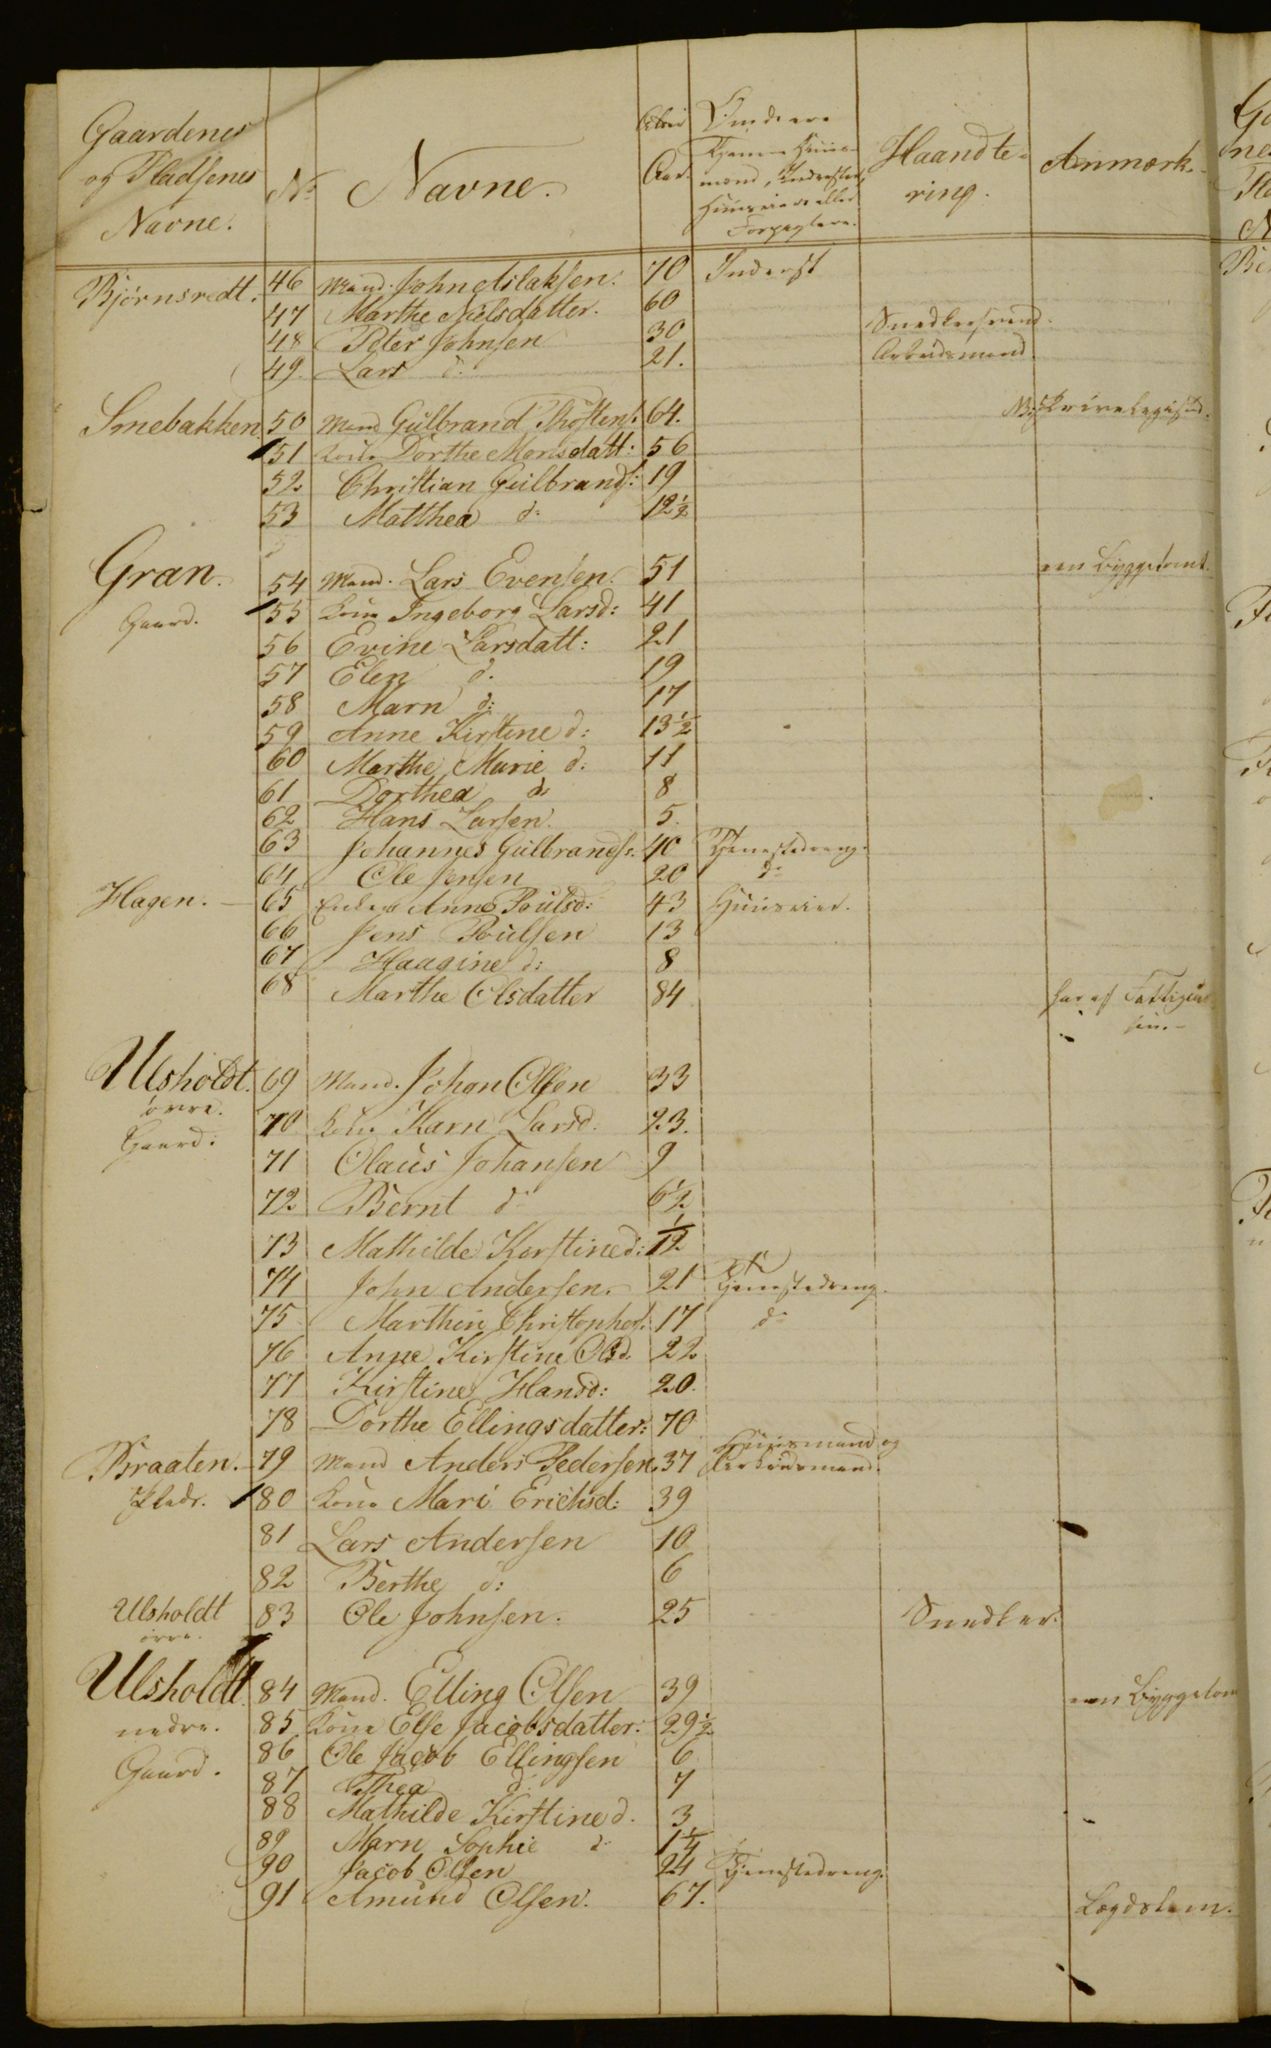 Gaardenes og Pladsenes Navne. No Navne. Aar. Haandtering. Anmærk.
Bjørnsredt. 46 Mand. John Aslaksen. 70 Inderst
47 Marthe Nielsdatter. 60
48 Peter Johnsen 30 Snedkersvend.
49 Lars do 21. Arbeidsmand
Smebakken 50 Mand Gulbrand Thostens: 64.
51 Kone Dorthe Monsdatt: 56
52 Christian Gulbrands: 19
53 Matthea do 12½
Gran. 54 Mand. Lars Evensen. 51 een Byggetomt.
Gaard. 55 Kone Ingeborg Larsd: 41
56 Evine Larsdatt: 21
57 Elen d. 19
58 Marn d: 17
59 Anne Kirstine d: 13½
60 Marthe Marie d. 11
61 Dorthea do 8
62 Hans Larsen. 5.
63 Johannes Gulbrands: 40 Tjenestedreng.
64 Ole Jensen 20 do
Hagen. 65 Enke Anne Poulsd: 43 Huuseier.
66 Jens Poulsen 13
67 Haagine d: 8
68 Marthe Olsdatter 84 har af Fattigcas
Ulsholdt. 69 Mand. Johan Olsen 33
øvre. 70 Kone Karn Larsd. 23.
Gaard: 71 Olaus Johansen 9
72 Bernt do 6½
73 Mathilde Kerstine d: ½
74 John Andersen. 21 Tjenestedreng.
75 Marthin Christophers: 17 do
76 Anne Kirstine Olsd. 22
77 Kirstine Hansd: 20.
78 Dorthe Ellingsdatter: 70
Braaten. 79 Mand Anders Pedersen. 37 Huusmand og Arbeidsmand.
Plads. 80 Kone Mari Erichsd: 39
81 Lars Andersen 10
82 Berthe d: 6
Ulsholdt øvre. 83 Ole Johnsen. 25 Snedker.
Ulsholdt 84 Mand. Elling Olsen 39 een Byggetom
nedre. 85 Kone Else Jacobsdatter. 29½
Gaard. 86 Ole Jacob Ellingsen 6
87 Thea d. 7
88 Mathilde Kirstine d. 3
89 Marn Sophie d. 1¼
90 Jacob Olsen 24 Tjenestedreng.
91 Amund Olsen. 67. Lægdslem.